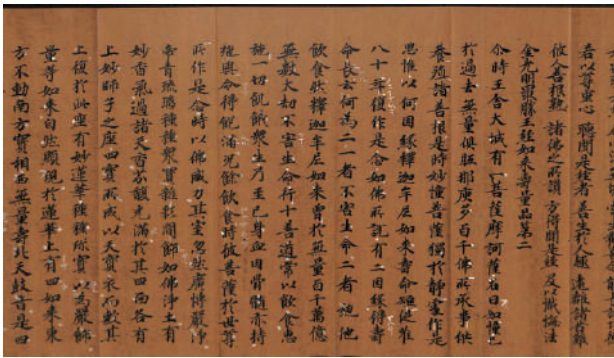 若以尊重心 聽聞是經者 善生於人趣 遠離諸苦難
彼人善根熟 諸佛之所讚 方得聞是經 及以懺悔法
金光明最勝王經如來壽量品第二
尒時王舍大城有一菩薩摩訶薩名曰妙幢已
於過去無量俱胝那庾多百千佛所承事供
養殖諸善根是時妙幢菩薩獨於靜處作是
思惟以何因緣釋迦牟尼如來壽命短促唯
八十年復作是念如佛所說有二因緣得壽
命長云何為二一者不害生命二者施他
飲食然釋迦牟尼如來曾於無量百千萬億
無數大劫不害生命行十善道常以飲食惠
施一切飢餓衆生乃至己身血肉骨髓亦持
施與令得飽滿況餘飲食時彼菩薩於世尊
所作是念時以佛威力其室忽然廣博嚴淨
帝青琉璃種種衆寶雜彩間飾如佛淨土有
妙香氣過諸天香芬馥充滿於其四面各有
上妙師子之座四寶所成以天寶衣而敷其
上復於此座有妙蓮華種種珎寶以為嚴飾
量等如來自然顯現於蓮華上有四如來東
方不動南方寶相西無量壽北天鼓音是四